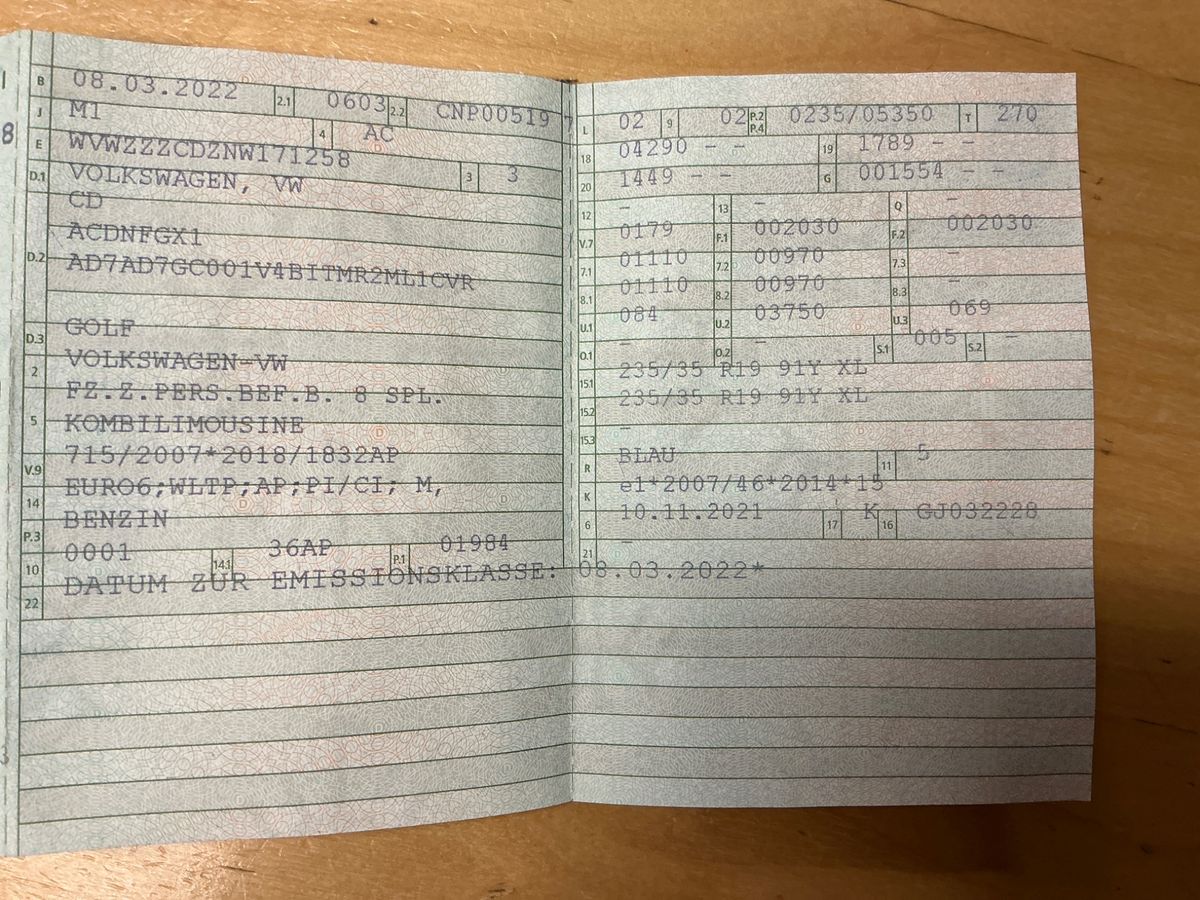 B 08.03.2022 2.1 0603 2.2 CNP00519 7
J M1 4 AC
E WVWZZZCDZNW171258 3 3
D.1 VOLKSWAGEN, VW
CD
D.2 ACDNFGX1
AD7AD7GC001V4BITMR2ML1CVR
D.3 GOLF
2 VOLKSWAGEN-VW
5 FZ.Z.PERS.BEF.B. 8 SPL.
KOMBILIMOUSINE
V.9 715/2007*2018/1832AP
14 EURO6;WLTP;AP;PI/CI; M,
P.3 BENZIN
10 0001 14.1 36AP P.1 01984
22 DATUM ZUR EMISSIONSKLASSE: 08.03.2022*
8
L 02 9 02 P.2 P.4 0235/05350 T 270
18 04290 - - 19 1789 - -
20 1449 - - G 001554 - -
12 - 13 - Q -
V.7 0179 F.1 002030 F.2 002030
7.1 01110 7.2 00970 7.3 -
8.1 01110 8.2 00970 8.3 -
U.1 084 U.2 03750 U.3 069
O.1 - O.2 - S.1 005 S.2 -
15.1 235/35 R19 91Y XL
15.2 235/35 R19 91Y XL
15.3 -
R BLAU 11 5
K e1*2007/46*2014*15
6 10.11.2021 17 K 16 GJ032228
21 -